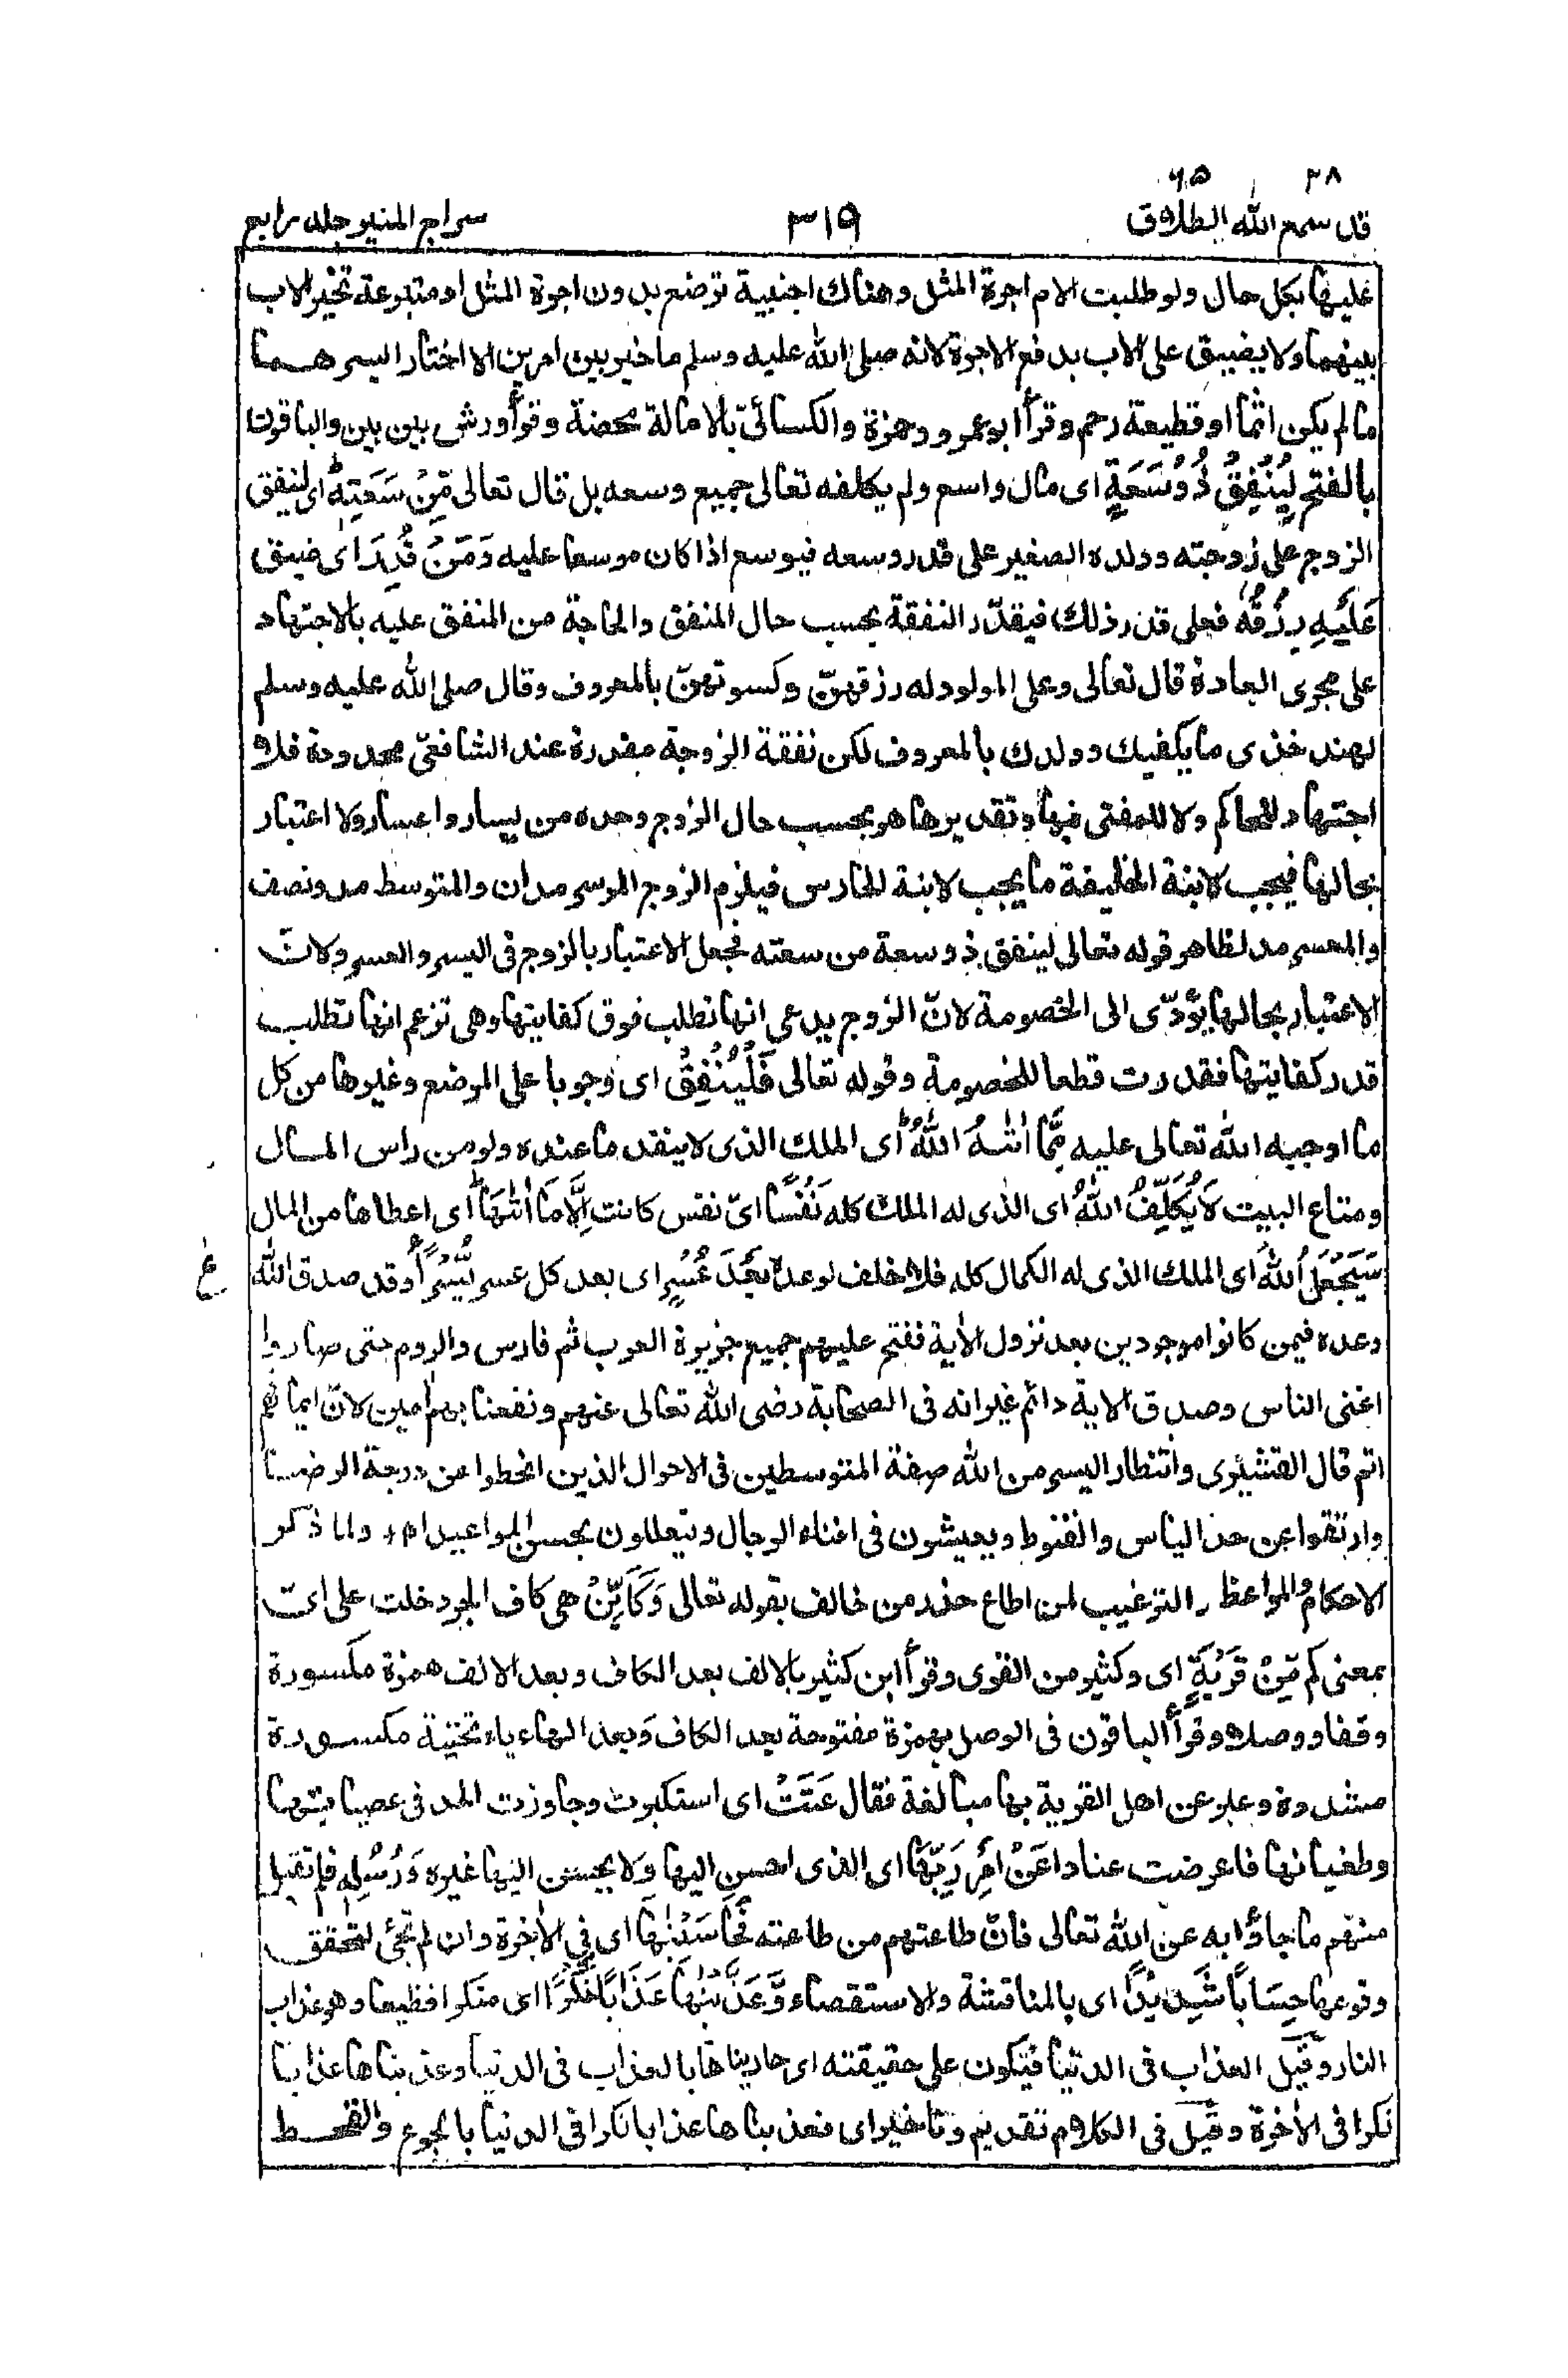 ٢٨ ٦٥
قد سمع الله الطلاق ٣١٩ سراج المنير جلد رابع
عليها بكل حال ولو طلبت الام اجرة المثل وهناك اجنبية ترضع بدون اجرة المثل او متبرعة تخير الاب
بينهما ولا يضيق على الاب بدفع الاجرة لانه صلى الله عليه وسلم ما خير بين امرين الا اختار ايسرهما
ما لم يكن اثما او قطيعة رحم وقرأ ابو عمرو وحمزة والكسائيّ بالامالة محضة وقرأ ورش بين بين والباقون
بالفتح لِيُنْفِقْ ذُوْ سَعَةٍ اى مال واسع ولم يكلفه تعالى جميع وسعه بل قال تعالى مِّنْ سَعَتِهٖ اى لينفق
الزوج على زوجته وولده الصغير على قدر وسعه فيوسع اذا كان موسعا عليه وَمَنْ قُدِرَ اى ضيق
عَلَيْهِ رِزْقُهٗ فعلى قدر ذلك فيقدّر النفقة بحسب حال المنفق والحاجة من المنفق عليه بالاجتهاد
على مجرى العادة قال تعالى وعلى المولود له رزقهنّ وكسوتهنّ بالمعروف وقال صلى الله عليه وسلم
لهند خذى ما يكفيك وولدك بالمعروف لكن نفقة الزوجة مقدرة عند الشافعىّ محدودة فلا
اجتهاد للحاكم ولا للمفتى فيها وتقديرها هو بحسب حال الزوج وحده من يسار واعسار ولا اعتبار
بحالها فيجب لابنة الخليفة ما يجب لابنة الحارس فيلزم الزوج الموسر مدان والمتوسط مد ونصف
والمعسر مد لظاهر قوله تعالى لينفق ذو سعة من سعته فجعل الاعتبار بالزوج فى اليسر والعسر ولانّ
الاعتبار بحالها يؤدّى الى الخصومة لانّ الزوج يدعى انها تطلب فوق كفايتها وهى تزعم انها تطلب
قدر كفايتها فقدرت قطعا للخصومة وقوله تعالى فَلْيُنْفِقْ اى وجوبا على المرضع وغيرها من كل
ما اوجبه الله تعالى عليه مِمَّا اٰتٰىهُ اللّٰهُ اى الملك الذى لا ينفد ما عنده ولو من راس المال
ومتاع البيت لَا يُكَلِّفُ اللّٰهُ اى الذى له الملك كله نَفْسًا اىّ نفس كانت اِلَّا مَا اٰتٰىهَا اى اعطاها من المال
سَيَجْعَلُ اللّٰهُ اى الملك الذى له الكمال كله فلا خلف لوعده بَعْدَ عُسْرٍ اى بعد كل عسر يُّسْرًا وقد صدق الله
ع
وعده فيمن كانوا موجودين بعد نزول الاٰية ففتح عليهم جميع جزيرة العرب ثم فارس والروم حتى صاروا
اغنى الناس وصدق الاية دائم غير انه فى الصحابة رضى الله تعالى عنهم ونفعنا بهم اٰمين لانّ ايمانهم
اتم قال القشيرى وانتظار اليسر من الله صفة المتوسطين فى الاحوال الذين انحطوا عن درجة الرضا
وارتقوا عن حد الياس والقنوط ويعيشون فى افناء الرجال ويتعللون بحسن المواعيد اه ولما ذكر
الاحكام والمواعظ والترغيب لمن اطاع حذر من خالف بقوله تعالى وَكَاَيِّنْ هى كاف الجر دخلت على اىّ
بمعنى كم مِّنْ قَرْيَةٍ اى وكثير من القرى وقرأ ابن كثير بالالف بعد الكاف وبعد الالف همزة مكسورة
وقفا ووصلا وقرأ الباقون فى الوصل بهمزة مفتوحة بعد الكاف وبعد الهاء ياء تحتية مكسورة
مشددة وعبر عن اهل القرية بها مبالغة فقال عَتَتْ اى استكبرت وجاوزت الحد فى عصيانها
وطغيانها فاعرضت عنادا عَنْ اَمْرِ رَبِّهَا اى الذى احسن اليها ولا يحسن اليها غيره وَرُسُلِهٖ فلم تقبل
منهم ما جاؤا به عن الله تعالى فانّ طاعتهم من طاعته فَحَاسَبْنٰهَا اى فى الاٰخرة وان لم تجئ لتحقق
وقوعها حِسَابًا شَدِيْدًا اى بالمناقشة والاستقصاء وَّعَذَّبْنٰهَا عَذَابًا نُّكْرًا اى منكرا فظيعا وهو عذاب
النار وقيل العذاب فى الدنيا فيكون على حقيقته اى جازيناها بالعذاب فى الدنيا وعذبناها عذابا
نكرا فى الاٰخرة وقيل فى الكلام تقديم وتاخير اى فعذبناها عذابا نكرا فى الدنيا بالجوع والقحط